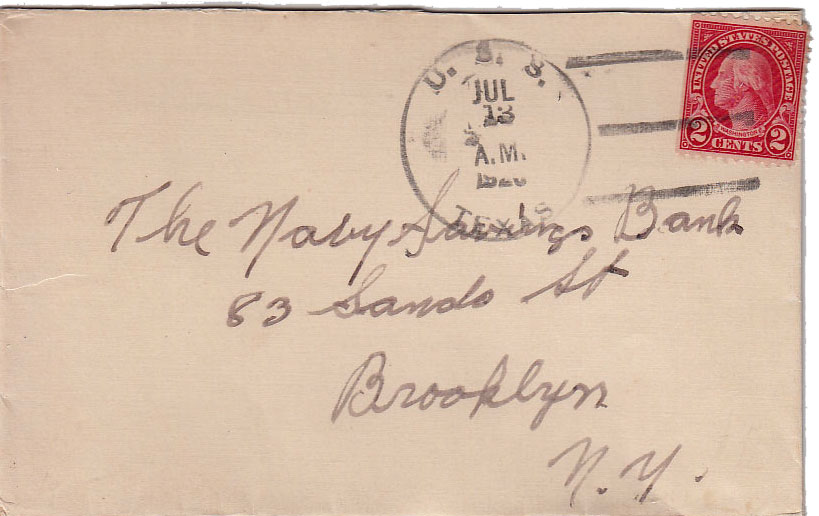 U. S. S.
JUL
13
A.M.
TEXAS
UNITED STATES POSTAGE
WASHINGTON
2 CENTS 2
The Navy Savings Bank
83 Sands St
Brooklyn
N.Y.